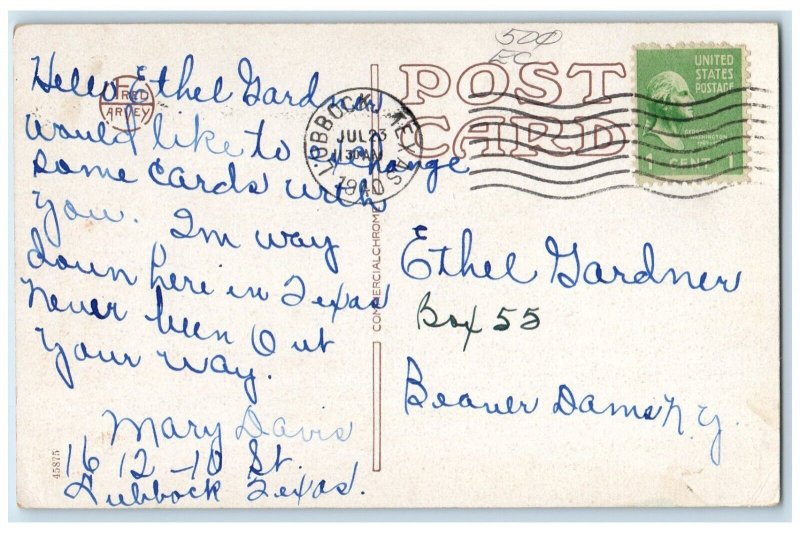 50¢
EC
POST
CARD
UNITED
STATES
POSTAGE
1 CENT 1
LUBBOCK, TEXAS
JUL 23
1940
FRED
HARVEY
COMMERCIALCHROME
45875
Hello Ethel Gardner
would like to exchange
some cards with
you. Im way
down here in Texas
never been Out
your way.
Mary Davis
1612-10 St.
Lubbock Texas.
Ethel Gardner
Box 55
Beaver Dams N.Y.